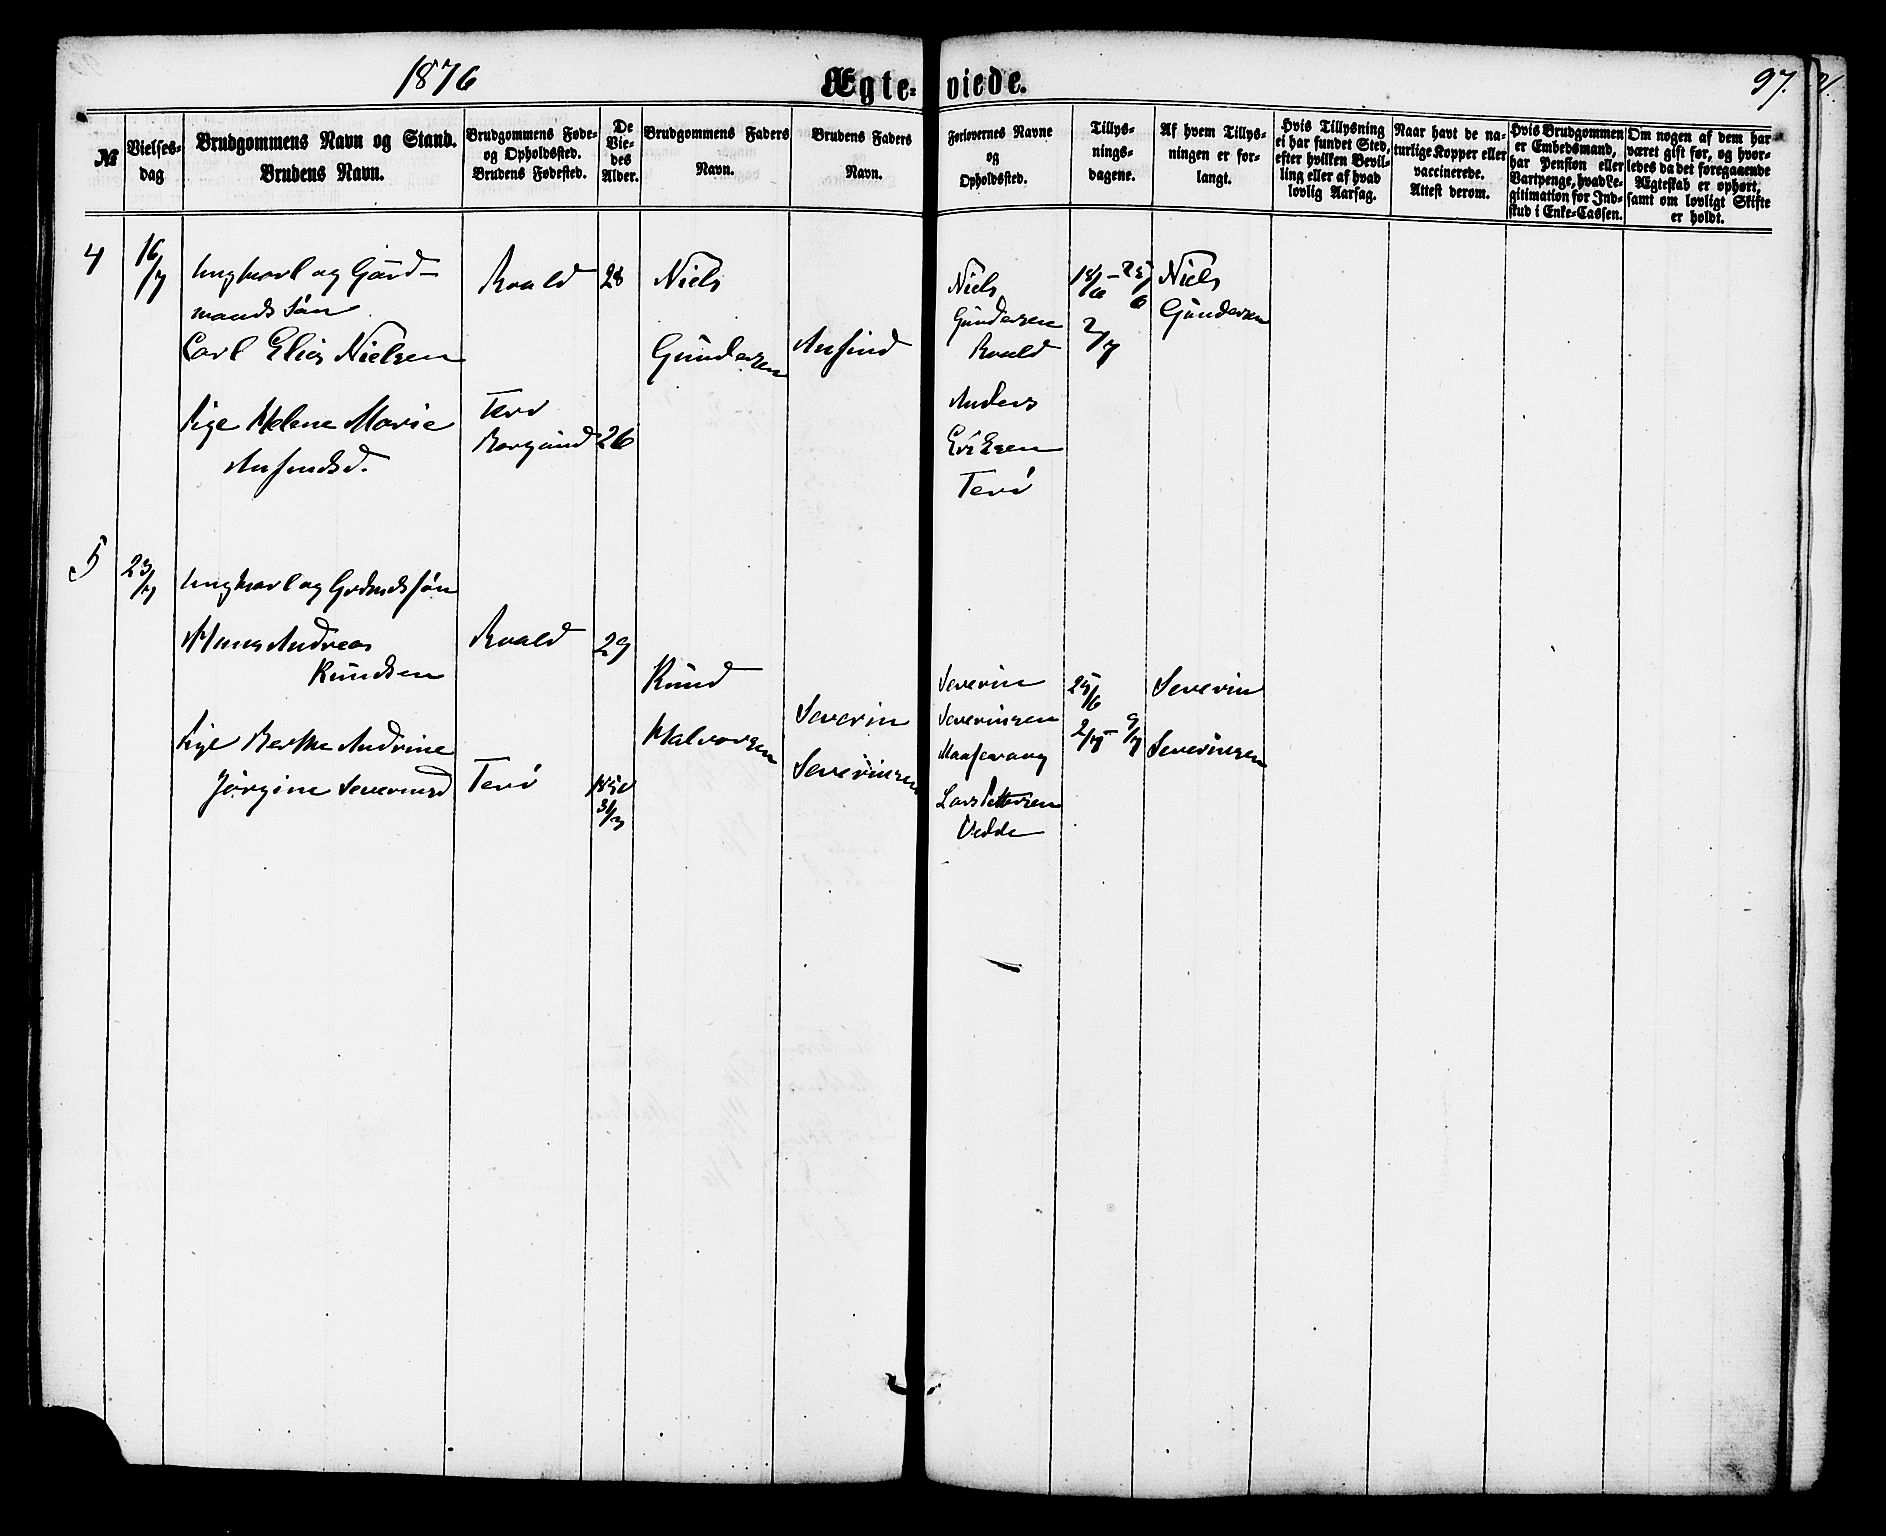 1876
Ægte-viede.
97.
№
Vielses-
dag
Brudgommens Navn og Stand.
Brudens Navn.
Brudgommens Føde-
og Opholdssted.
Brudens Fødested.
De
Vie-
des
Alder.
Brudgommens Faders
Navn.
Brudens Faders
Navn.
Forlovernes Navne
og
Opholdssted.
Tillys-
nings-
dagene.
Af hvem Tillys-
ningen er for-
langt.
Hvis Tillysning
ei har fundet Sted,
efter hvilken Bevil-
ling eller af hvad
lovlig Aarsag.
Naar havt de na-
turlige Kopper eller
vaccinerede.
Attest derom.
Hvis Brudgommen
er Embedsmand,
har Pension eller
Vartpenge, hvad Le-
gitimation for Ind-
skud i Enke-Cassen.
Om nogen af dem har
været gift før, og hvor-
ledes da det foregaaende
Ægteskab er ophørt,
samt om lovligt Skifte
er holdt.
4
16/7
Ungkarl og Gård-
mandssøn
Carl Elias Nielsen
Pige Helene Marie
Ansindsd.
Roald
Terø
Borgund
28
26
Niels
Gundersen
Ansind
Niels
Gundersen
Roald
Anders
Eriksen
Terø
18/6 - 25/6
2/7
Niels
Gundersen
5
23/7
Ungkarl og Grdmdssøn
Hans Andreas
Knudsen
Pige Berthe Andrine
Jørgine Severinsd
Roald
Terø
29
31/3
Knud
Halvorsen
Severin
Severinsen
Severin
Severinsen
Lars Pettersen
Vedde
25/6
2/7 - 9/7
Severin
Severinsen